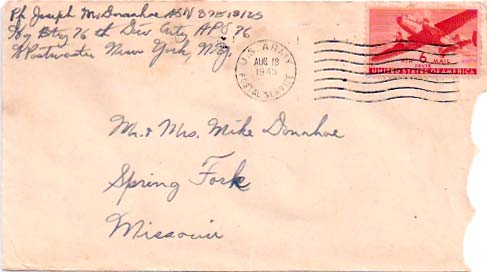 Pfc Joseph M. Donahoe ASN
Hq Btry 76th Div Arty APO 76
% Postmaster New York, N.Y.
U.S. ARMY
AUG 18
POSTAL SERVICE
AIR MAIL
6
CENTS
UNITED STATES OF AMERICA
Mr. & Mrs. Mike Donahoe
Spring Fork
Missouri